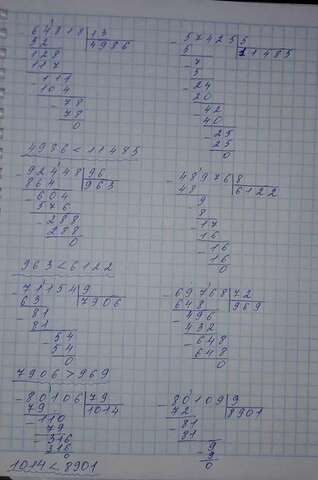 64818|13
52|4986
128
117
-111
104
-78
78
0
-57425|5
5|11485
-7
5
-24
20
-42
40
-25
25
0
4986<11485
-92448|96
864|963
-604
576
-288
288
0
-48976|8
48|6122
-9
8
-17
16
-16
16
0
963<6122
-71154|9
63|7906
-81
81
-54
54
0
-69768|72
648|969
-496
432
-648
648
0
7906>969
-80106|79
79|1014
-110
79
-316
316
0
-80109|9
72|8901
-81
81
-9
9
0
1014<8901